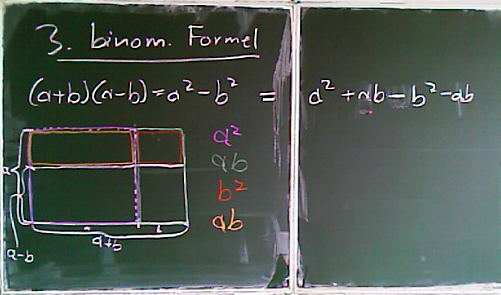 3. binom. Formel
(a+b)(a-b)=a²-b² = a²+ab-b²-ab
a²
ab
b²
ab
a
a b
a+b
a-b